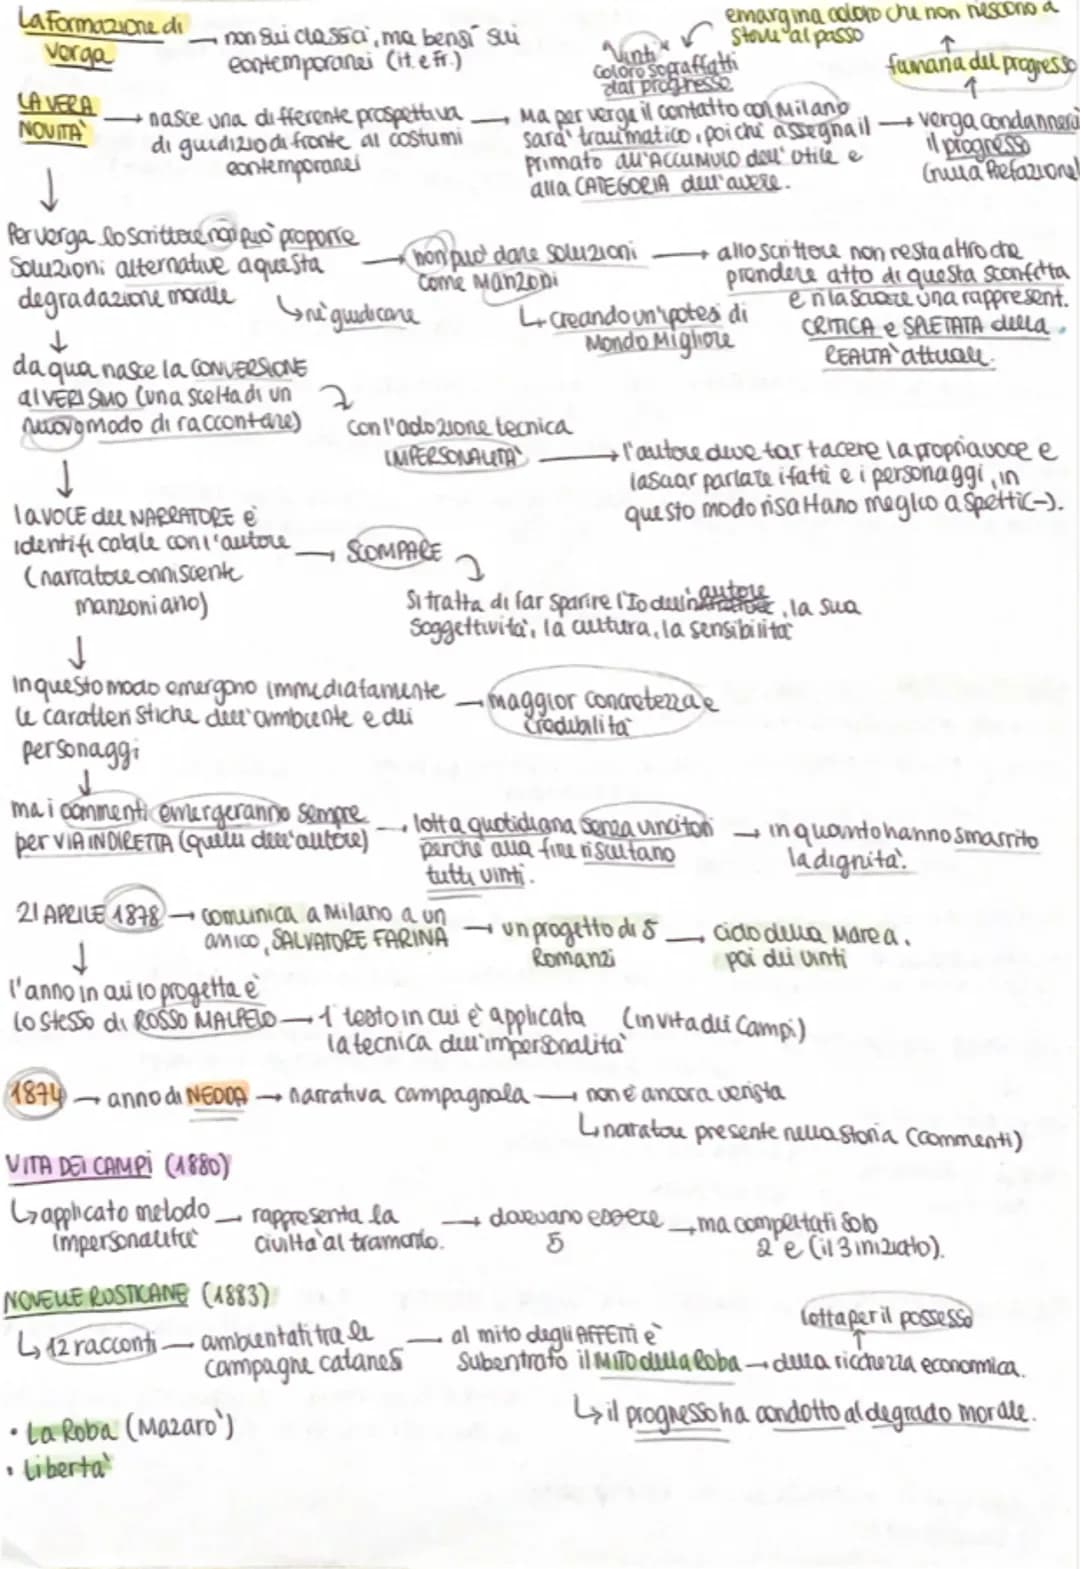 La Formazione di Verga → non sui classici, ma bensì sui contemporanei (it. e fr.)
emargina coloro che non riescono a stare al passo
"Vinti"
Coloro sopraffatti dal progresso
fiumana del progresso
LA VERA NOVITÀ → nasce una differente prospettiva di giudizio di fronte ai costumi contemporanei
→ Ma per verga il contatto con Milano sarà traumatico, poiché assegna il primato all'ACCUMULO dell'utile e alla CATEGORIA dell'avere.
→ verga condannerà il progresso (nella Prefazione)
Per verga lo scrittore non può proporre soluzioni alternative a questa degradazione morale
→ non può dare soluzioni come Manzoni
↳ né giudicare
↳ creando un'ipotesi di Mondo Migliore
→ allo scrittore non resta altro che prendere atto di questa sconfitta e rilasciare una rappresent. CRITICA e SPIETATA della REALTÀ attuale.
da qua nasce la CONVERSIONE al VERISMO (una scelta di un nuovo modo di raccontare)
con l'adozione tecnica IMPERSONALITÀ
→ l'autore deve far tacere la propria voce e lasciar parlare i fatti e i personaggi, in questo modo risaltano meglio aspetti (-).
la VOCE del NARRATORE è identificabile con l'autore (narratore onniscente manzoniano)
→ SCOMPARE
Si tratta di far sparire l'Io dell'autore, la sua soggettività, la cultura, la sensibilità
In questo modo emergono immediatamente le caratteristiche dell'ambiente e dei personaggi
→ maggior concretezza e credibilità
ma i commenti emergeranno sempre per VIA INDIRETTA (quelli dell'autore)
→ lotta quotidiana senza vincitori perché alla fine risultano tutti vinti.
→ in quanto hanno smarrito la dignità.
21 APRILE 1878 → comunica a Milano a un amico, SALVATORE FARINA
→ un progetto di 5 Romanzi
→ ciclo della Marea, poi dei vinti
l'anno in cui lo progetta è lo stesso di ROSSO MALPELO → 1° testo in cui è applicata la tecnica dell'impersonalità (in vita dei Campi)
1874 → anno di NEDDA → narrativa campagnola → non è ancora verista
↳ narratore presente nella storia (commenti)
VITA DEI CAMPI (1880)
↳ applicato metodo impersonalità → rappresenta la civiltà al tramonto. → dovevano essere 5 → ma completati solo 2 e (il 3 iniziato).
NOVELLE RUSTICANE (1883)
↳ 12 racconti → ambientati tra le campagne catanesi → al mito degli AFFETTI è subentrato il MITO della Roba → della ricchezza economica.
lotta per il possesso
↳ il progresso ha condotto al degrado morale.
• La Roba (Mazarò)
• Libertà